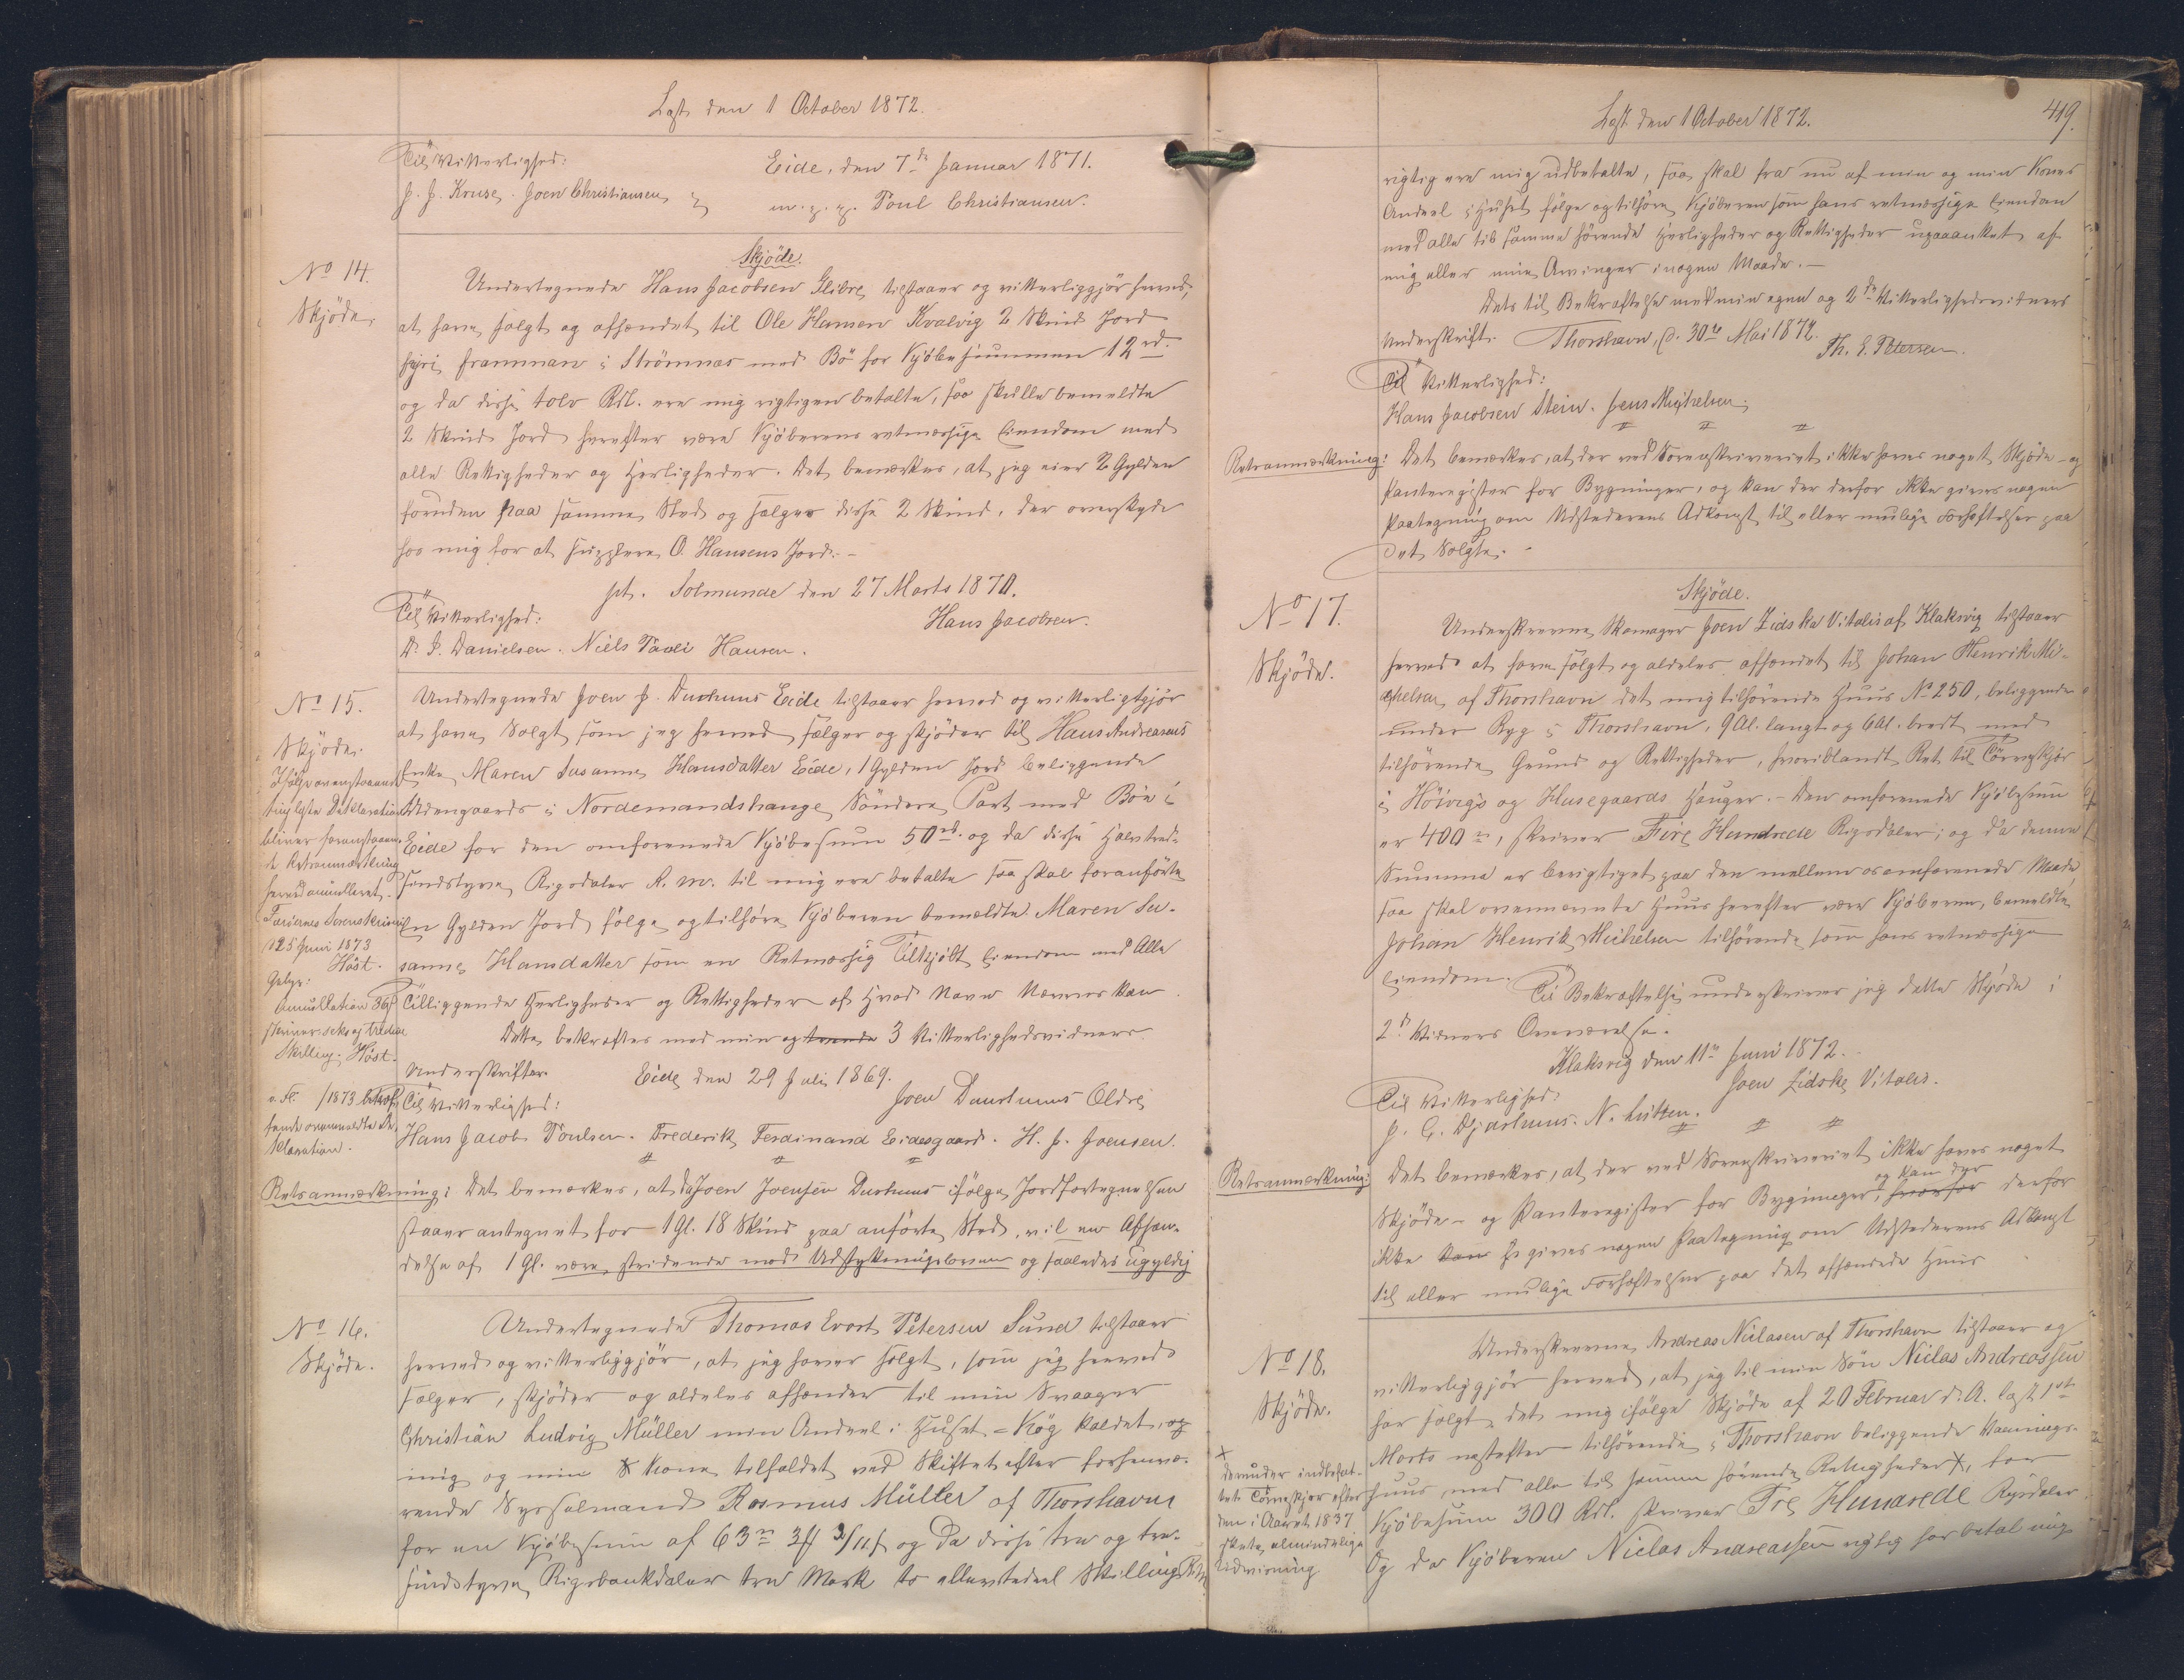 Læst den 1 October 1872.
Til Vitterlighed:
Eide, den 7de Januar 1871.
J. J. Kruse. Joen Christiansen
m. p. p. Poul Christiansen.
Skjöde.
No 14.
Skjöde.
Undertegnede Hans Jacobsen Glibre tilstaaer og vitterliggjör herved,
at have solgt og afhændet til Ole Hansen Kvalvig 2 Skind Jord
framman i Strömnæs med Bö for Kjöbesummen 12 rd.
og da disse tolv Rdl. ere mig rigtigen betalte, saa skulle bemeldte
2 Skind Jord herefter være Kjöberens retmæssige Eiendom med
alle Rettigheder og Herligheder. Det bemærkes, at jeg eier 2 Gylden
foruden paa samme Sted og sælger disse 2 Skind, der overskyde
hos mig for at supplere O. Hansens Jord. -
pt. Solmunde den 27 Marts 1871.
Til Vitterlighed:
Hans Jacobsen.
D. P. Danielsen. Niels Pavli Hansen.
No 15.
Skjöde.
Undertegnede Joen J. Durhuus Eide tilstaaer herved og vitterligtgjör
at have Solgt som jeg herved sælger og skjöder til Hans Andreasens
Enke, Maren Susanne Hansdatter Eide, 1 Gylden Jord beliggende
Udengaards i Nordemandshauge Söndere Part med Böe i
Eide for den omforenede Kjöbesum 50 rd. og da disse Halvtred-
sindstyve Rigsdaler R. M. til mig ere betalte saa skal foranförte
en Gylden Jord følge og tilhöre Kjöberen bemeldte Maren Su-
sanne Hansdatter som en Retmæssig Tilkjöbt Eiendom med Alle
Tilliggende Herligheder og Rettigheder af Hvad Navn Nævnes kan
Dette bekræftes med min og tvende 3 Vitterlighedsvidners
Underskrifter.
Eide den 29 Juli 1869.
Til Vitterlighed:
Joen Duurhuus Eldre
Hans Jacob Poulsen. Frederik Ferdinand Eidesgaard. H. J. Joensen.
Ifölge ovenstaaende
tinglyste Deklaration
bliver foranstaaen-
de Retsanmærkning
herved annulleret.
Færöernes Sorenskriveri
125 Juni 1873
Höst.
Gebyr:
Annullation 36 s
skriver sex og tredive
Skilling. Höst.
/1873
fanet ovenmeldte De-
klaration.
Retsanmærkning: Det bemærkes, at da Joen Joensen Durhuus ifölge Jordfortegnelsen
staaer antegnet for 1 Gl. 18 Skind paa anförte Sted, vil en Afhæn-
delse af 1 Gl. være stridende mod Udstykningsloven og saaledes ugyldig
No 16.
Skjöde.
Undertegnede Thomas Evert Petersen Sund tilstaaer
herved og vitterliggjör, at jeg haver solgt, som jeg herved
sælger, skjöder og aldeles afhænder til min Svaager
Christian Ludvig Müller min Andeel i Huset - Kög kaldet, og
mig og min Kone tilfaldet ved Skiftet efter forhenvæ-
rende Sysselmand Rasmus Müller af Thorshavn
for en Kjöbesum af 63 rd 3 ₰ 2/11 s og Da disse tre og tre-
sindstyve Rigsbankdaler tre Mark to ellevtedeel Skilling R. M.
Læst den 1 October 1872.
419.
rigtig ere mig udbetalte, saa skal fra nu af min og min Kones
Andeel i Huset følge og tilhöre Kjöberen som hans retmæssige Eiendom
med alle til samme hörende Herligheder og Rettigheder upaaanket af
mig eller mine Arvinger i nogen Maade. -
Dets til Bekræftelse med min egen og 2de Vitterlighedsvidners
Underskrift. Thorshavn, d. 30te Mai 1872.
Th. E. Petersen.
Til Vitterlighed:
Hans Jacobsen Stein. Jens Michelsen.
Retsanmærkning: Det bemærkes, at der ved Sorenskriveriet ikke haves noget Skjöde - og
Panteregister for Bygninger, og kan der derfor ikke gives nogen
Paategning om Udstederens Adkomst til eller mulige Forhæftelser paa
det Solgte. -
Skjöde.
No 17.
Skjöde.
Underskrevne Skomager Joen Zidska Vitalis af Klaksvig tilstaaer
herved at have solgt og aldeles afhændet til Johan Henrik Mi-
chelsen af Thorshavn det mig tilhörende Huus No 250, beliggende
under Ryg i Thorshavn, 9 Al. langt og 6 Al. bredt med
tilhörende Grund og Rettigheder, hvoriblandt Ret til Törveskjær
i Höivigs og Husegaards Hauger. - Den omforenede Kjöbesum
er 400 rd, skriver Fire Hundrede Rigsdaler; og da denne
Summa er berigtiget paa den mellem os omforenede Maade
saa skal ovennævnte Huus herefter være Kjöberen, bemeldte
Johan Henrik Michelsen tilhörende som hans retmæssige
Eiendom.
Til Bekræftelse underskriver jeg dette Skjöde i
2de Vidners Overværelse.
Klaksvig den 11te Juni 1872.
Joen Zidske Vitalis.
Til Vitterlighed
J. C. Djurhuus. N. Lützen.
Retsanmærkning: Det bemærkes, at der ved Sorenskriveriet ikke haves noget
Skjöde - og Panteregister for Bygninger, hvorfor og kan der derfor
ikke kan gives nogen Paategning om Udstederens Adkomst
til eller mulige Forhæftelser paa det afhændede Huus
No 18.
Skjöde.
Underskrevne Andreas Niclasen af Thorshavn tilstaaer og
vitterliggjör herved, at jeg til min Sön Niclas Andreassen
har solgt det mig ifölge Skjöde af 20 Februar d. A. læst 1st
Marts næstefter tilhörende i Thorshavn beliggende Vaanings-
huus med alle til samme hörende Rettigheder ×, for
Kjöbesum 300 Rdl. skriver Tre Hundrede Rigsdaler
Og da Kjöberen Niclas Andreassen rigtig har betal mig
×
derunder indbefat-
tet Törveskjær efter
den i Aaret 1837
skete almindelige
Udvisning